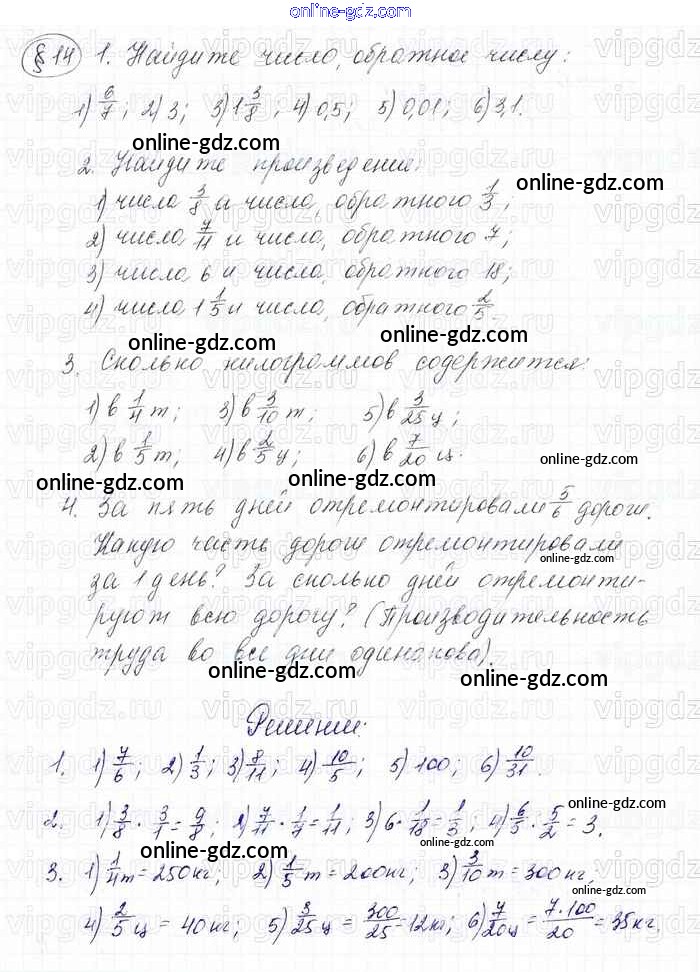 online-gdz.com
§ 14 1. Найдите число, обратное числу:
1) 6/7; 2) 3; 3) 1 3/8; 4) 0,5; 5) 0,01; 6) 3,1.
online-gdz.com
2. Найдите произведение:
online-gdz.com
1) числа 3/8 и числа, обратного 1/3;
2) числа 7/11 и числа, обратного 7;
3) числа 6 и числа, обратного 18;
4) числа 1 1/5 и числа, обратного 2/5.
online-gdz.com
online-gdz.com
3. Сколько килограммов содержится:
1) в 1/4 т; 3) в 3/10 т; 5) в 3/25 ц;
2) в 1/5 т; 4) в 2/5 ц; 6) в 7/20 ц.
online-gdz.com
online-gdz.com
online-gdz.com
4. За пять дней отремонтировали 5/6 дороги.
Какую часть дороги отремонтировали
online-gdz.com
за 1 день? За сколько дней отремонти-
руют всю дорогу? (Производительность
online-gdz.com
труда во все дни одинакова).
online-gdz.com
online-gdz.com
Решение:
1. 1) 7/6; 2) 1/3; 3) 8/11; 4) 10/5; 5) 100; 6) 10/31.
online-gdz.com
2. 1) 3/8 · 3/1 = 9/8; 2) 7/11 · 1/7 = 1/11; 3) 6 · 1/18 = 1/3; 4) 6/5 · 5/2 = 3.
online-gdz.com
online-gdz.com
3. 1) 1/4 т = 250 кг; 2) 1/5 т = 200 кг; 3) 3/10 т = 300 кг;
online-gdz.com
4) 2/5 ц = 40 кг; 5) 3/25 ц = 300/25 = 12 кг; 6) 7/20 ц = 7·100/20 = 35 кг.
online-gdz.com